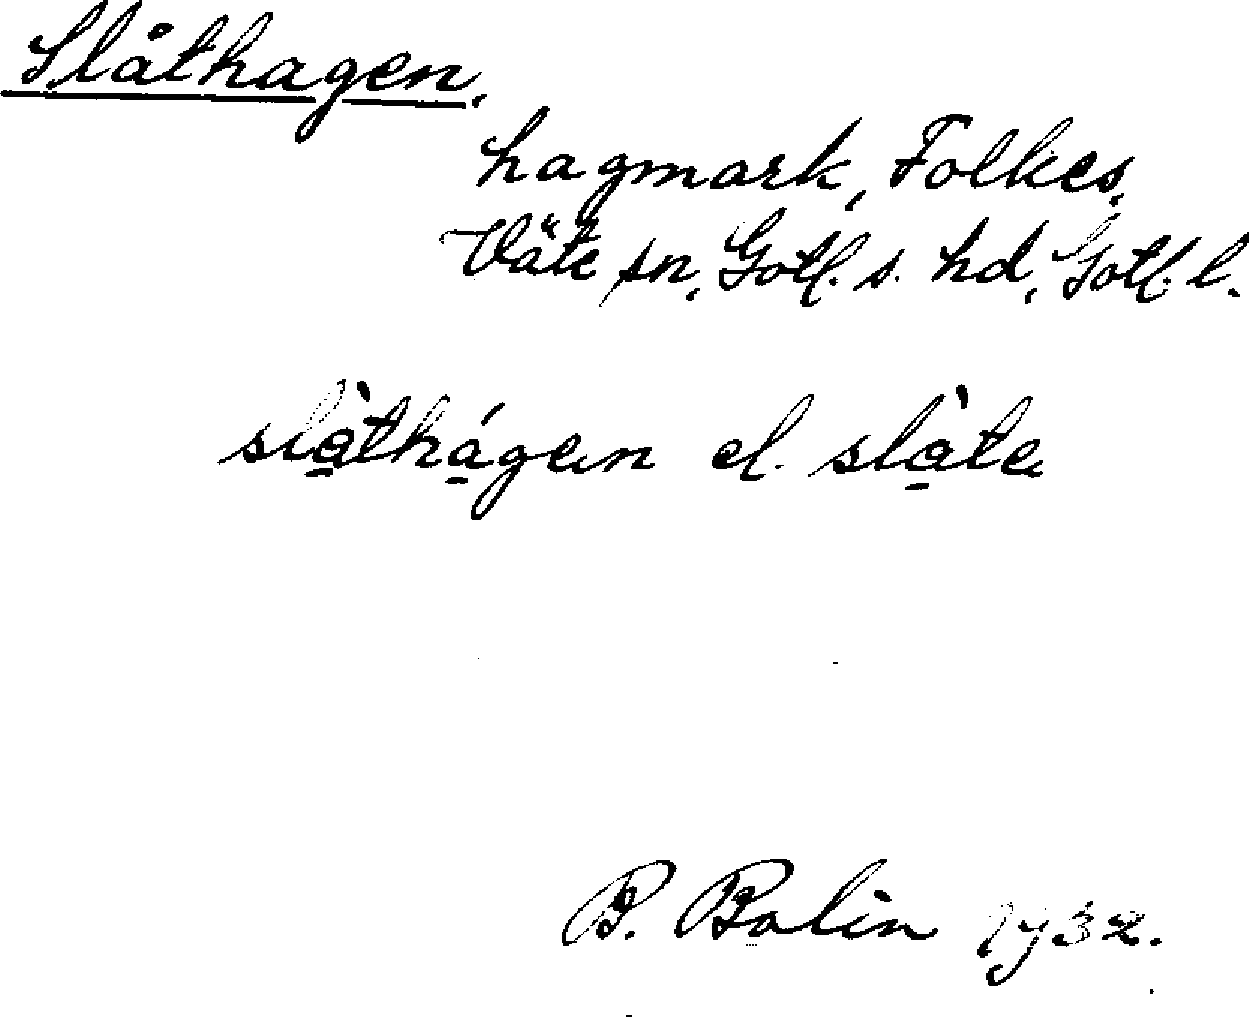 Slåthagen.
hagmark, Folkes,
Väte sn, Gotl. s. hd, Gotl. l.
slა̀thágen el. slàte
B. Bolin 1932.